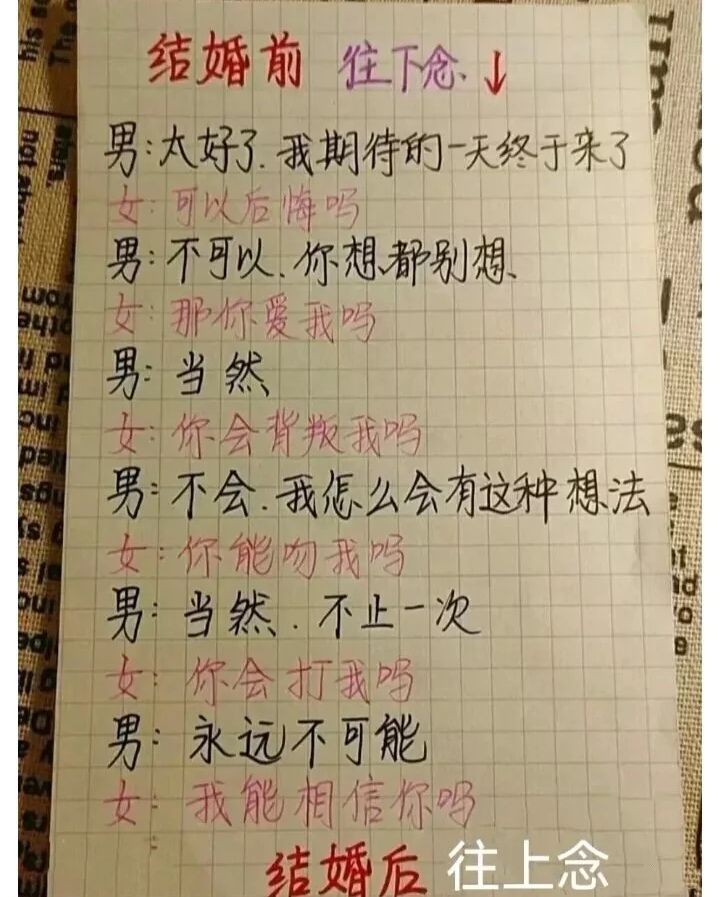 结婚前 往下念 ↓
男：太好了.我期待的一天终于来了
女：可以后悔吗
男：不可以.你想都别想.
女：那你爱我吗
男：当然
女：你会背叛我吗
男：不会.我怎么会有这种想法
女：你能吻我吗
男：当然.不止一次
女：你会打我吗
男：永远不可能
女：我能相信你吗
结婚后 往上念